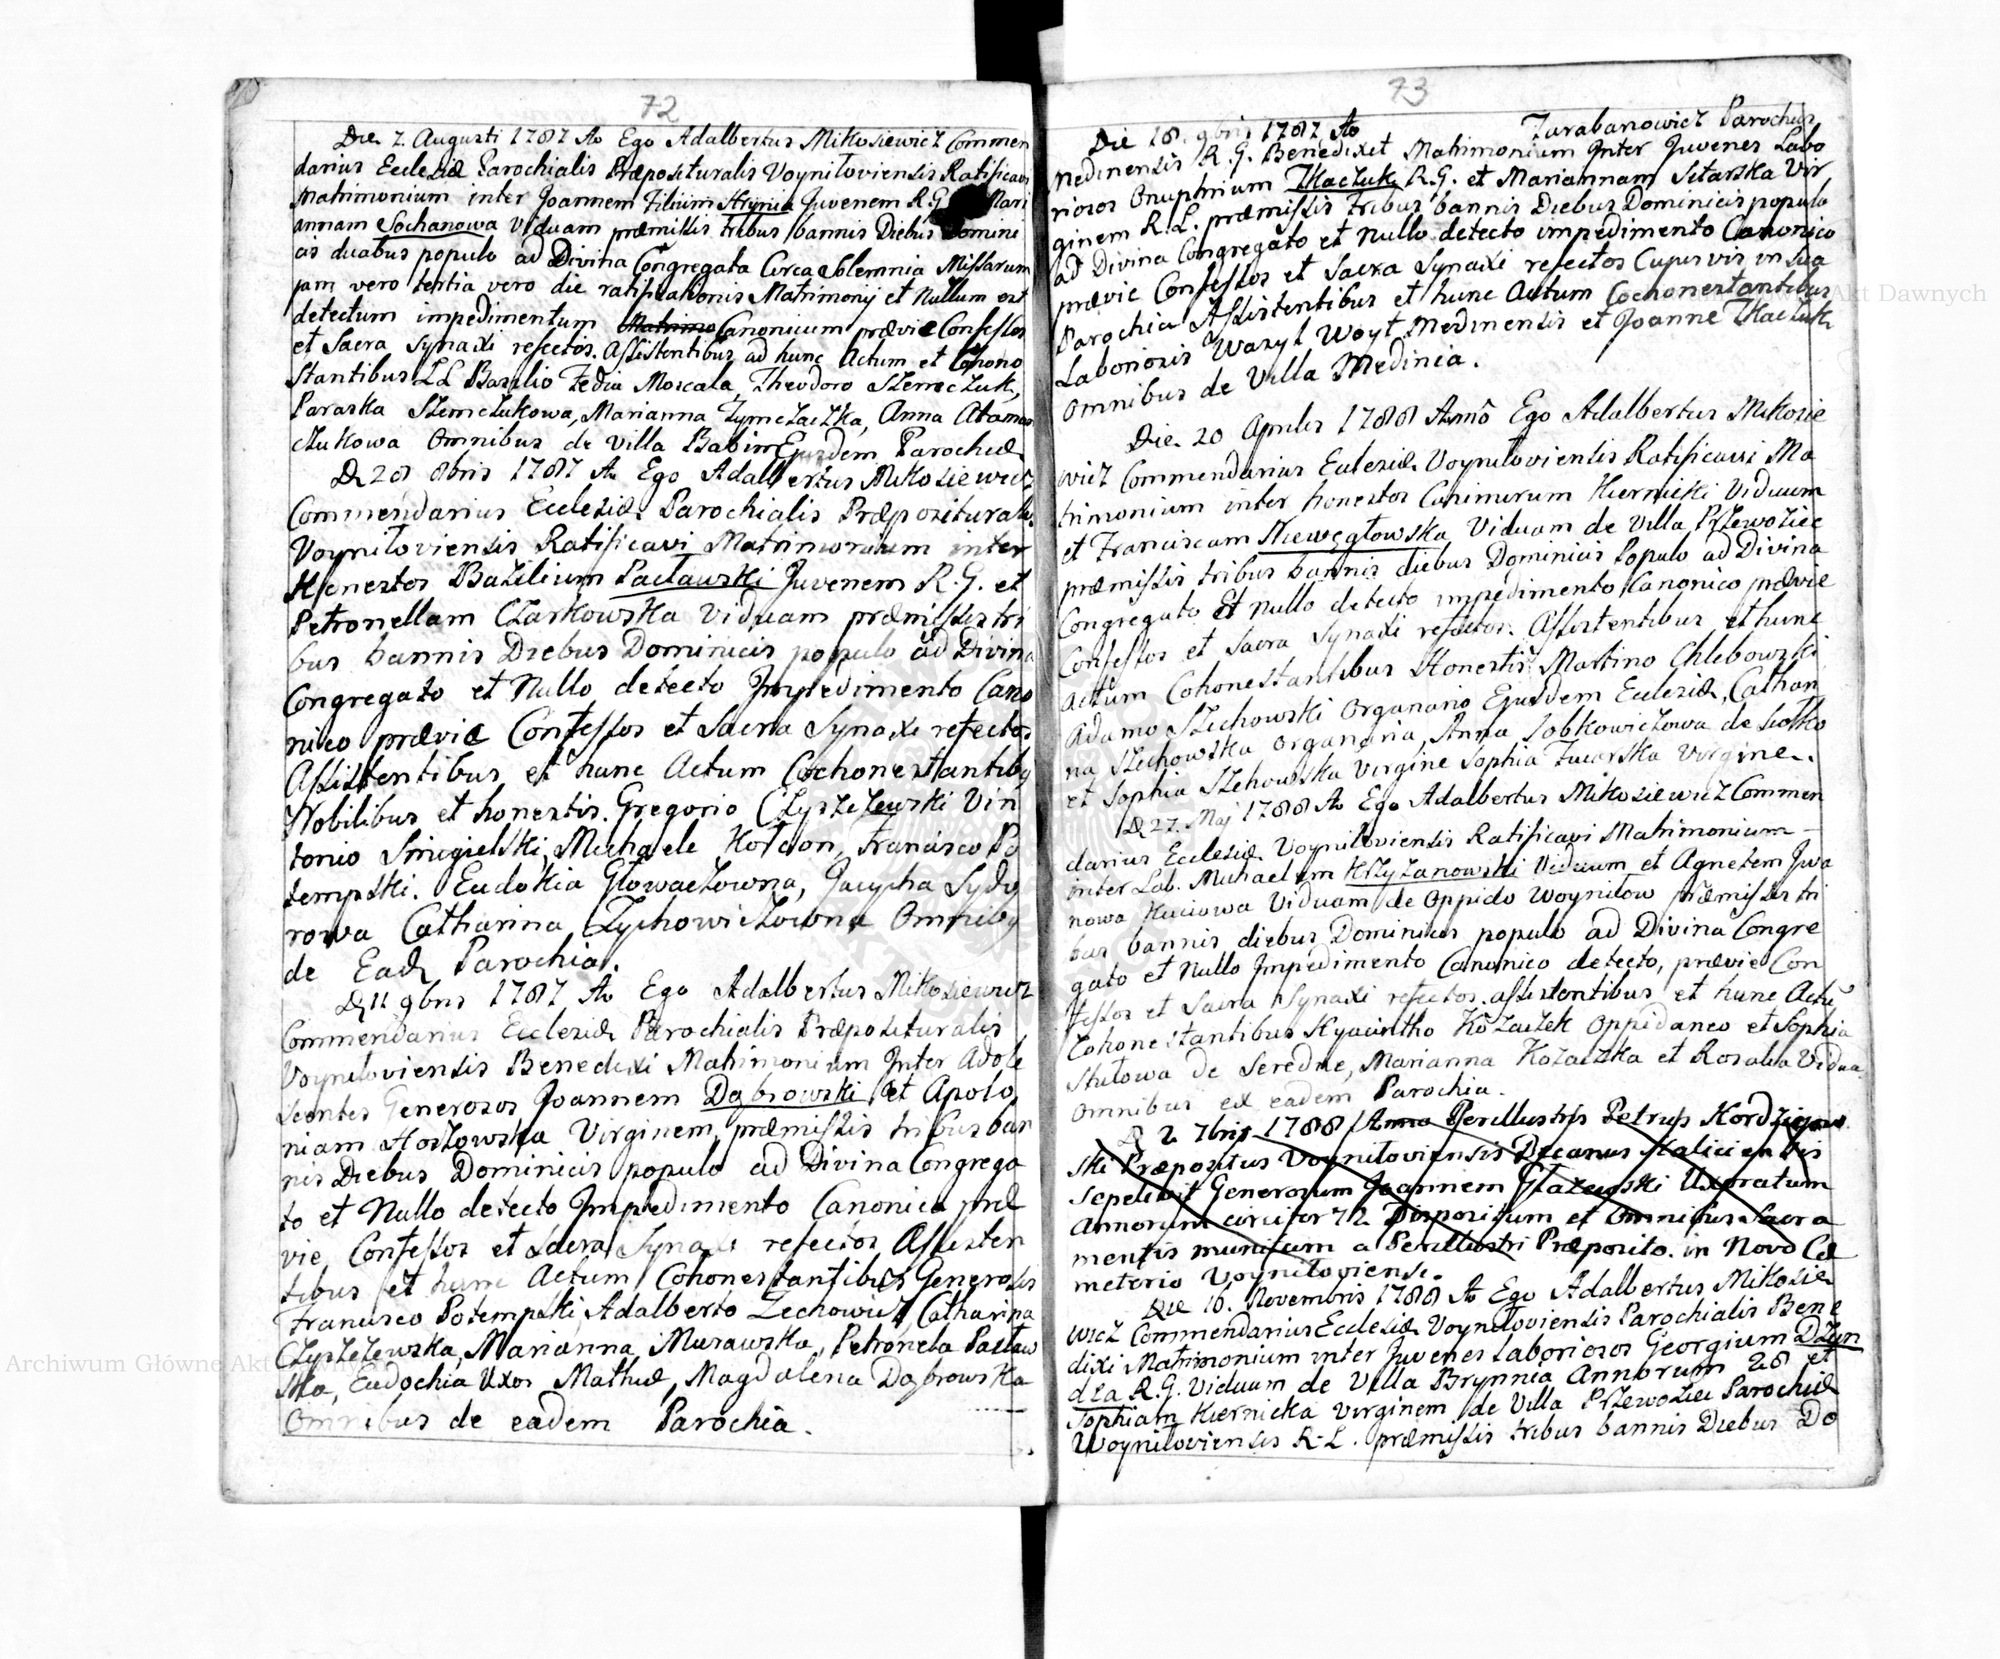 72
Die 7. Augusti 1787 Ao Ego Adalbertus Mikosiewicz Commen
darius Ecclesiæ Parochialis Præposituralis Voyniloviensis Ratificavi
Matrimonium inter Joannem Filium Hrynia Juvenem R.G. Mari
annam Sochanowa Viduam præmissis tribus bannis Diebus Domini
cis duabus populo ad Divina Congregata Circa Solemnia Missarum
jam vero tertia vero die ratificationis Matrimonij et Nullum est
detectum impedimentum Matrimo Canonicum prævie Confessos
et Sacra Synaxi refectos. Assistentibus ad hunc Actum et Cohono
stantibus LL Basilio Fediu Moscala, Theodoro Szemczuk,
Paraska Szemczukowa, Marianna Tymczaczka, Anna Adam
czukowa Omnibus de Villa Babin Ejusdem Parochiæ
D 28 8bris 1787 Ao Ego Adalbertus Mikosiewicz
Commendarius Ecclesiæ Parochialis Præposituralis
Voyniloviensis Ratificavi Matrimonium inter
Honestos Bazilium Pacławski Juvenem R.G. et
Petronellam Czarkowska Viduam præmissis tri
bus bannis Diebus Dominicis populo ad Divina
Congregato et Nullo detecto Impedimento Cano
nico prævie Confessos et Sacra Synaxi refectos
Assistentibus et hunc Actum Cochonestantibg
Nobilibus et honestis. Gregorio Czyszczewski Vin
tonio Smigielski, Michaele Kołton, Francisco Po
tempski. Eudokia Głowaczowna, Jacyna Sydo
rowa Catharina Zychowiczowna Omnibg
de Ead Parochia.
D 11 9bris 1787 Ao Ego Adalbertus Mikosiewicz
Commendarius Ecclesiæ Parochialis Præposituralis
Voyniloviensis Benedixi Matrimonium Inter Adole
scentes Generosos Joannem Dąbrowski et Apolo
niam Hoszowska Virginem, præmissis tribus ban
nis Diebus Dominicis populo ad Divina Congrega
to et Nullo detecto Impedimento Canonico præ
vie Confessos et Sacra Synaxi refectos Assisten
tibus et hunc Actum Cohonestantibus Generosis
Francisco Potempski, Adalberto Zechowicz, Catharina
Czyszczewska, Marianna Murawska, Petronela Pacław
ska, Eudochia Uxor Mathiæ, Magdalena Dąbrowska
Omnibus de eadem Parochia.
73
Die 18. 9bris 1787 Ao Tarabanowicz Parochus
Medinensis R.G. Benedixit Matrimonium Inter Juvenes Labo
riosos Onuphrium Tkaczuk R.G. et Mariannam Sitarska Vir
ginem R.L. præmissis tribus bannis Diebus Dominicis populo
ad Divina Congregato et nullo detecto impedimento Canonico
prævie Confessos et Sacra Synaxi refectos Cujusvis in sua
Parochia Assistentibus et hunc Actum Cochonestantibus
Laboriosis Wasyl Woyt Medinensis et Joanne Tkaczuk
Omnibus de Villa Medinia.
Die 20 Aprilis 1788 Anno Ego Adalbertus Mikosie
wicz Commendarius Eclesiæ Voyniloviensis Ratificavi Ma
trimonium inter honestos Casimirum Kiernicki Viduum
et Franciscam Niewęgłowska Viduam de Villa Przewoziec
præmissis tribus bannis diebus Dominicis Populo ad Divina
Congregato Et Nullo detecto impedimento Canonico prævie
Confessos et Sacra Synaxi refectos. Assistentibus et hunc
Actum Cohonestantibus Honestis Martino Chlebowski
Adamo Szechowski Organario Ejusdem Eclesiæ, Cathari
na Szechowska Organaria, Anna Sobkowiczowa de
et Sophia Szehowska Virgine Sophia Twarska Virgine.
D 27 Maj 1788 Ao Ego Adalbertus Mikosiewicz Commen
darius Ecclesiæ Voyniloviensis Ratificavi Matrimonium
inter Lab. Michaelem Krzyżanowski Viduum et Agnetem Jwa
nowa Kuciowa Viduam de Oppido Woyniłow præmissis tri
bus bannis diebus Dominicis populo ad Divina Congre
gato et Nullo Impedimento Canonico detecto, prævie Con
fessos et Sacra Synaxi refectos. assistentibus et hunc Actũ
Cohonestantibus Hyacintho Kozaczek Oppidaneo et Sophia
Stutowa de Seredne, Marianna Kozaczka et Rosalia Vidua
Omnibus ex eadem Parochia.
D 2 7bris 1788 Anno Perillustris Petrus Kordziko
ski Præpositus Voyniloviensis Decanus Haliciensis
Sepelivit Generosum Joannem Głazewski Uxoratum
Annorum circiter 72 Dispositum et Omnibus Sacra
mentis munitum a Perillustri Præposito. in Novo Cæ
meterio Voyniloviensi.
Die 16. Novembris 1788 Ao Ego Adalbertus Mikosie
wicz Commendarius Ecclesiæ Voyniloviensis Parochialis Bene
dixi Matrimonium inter Juvenes laboriosos Georgium Dzyn
dza R.G. Viduum de Villa Brynnia Annorum 28 et
Sophiam Kiernicka Virginem de Villa Przewoziec Parochiæ
Woyniloviensis R.L. præmissis tribus bannis Diebus Do
Archiwum Główne Akt Dawnych
Archiwum Główne Akt Dawnych